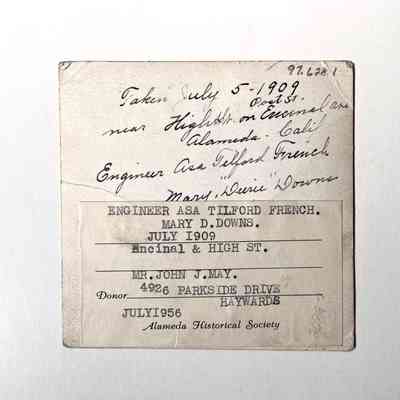 97.628.1
Taken July 5-1909
Post St.
near High St. on Encinal ave
Alameda. Calif
Engineer Asa Tilford French
Mary "Dixie" Downs
ENGINEER ASA TILFORD FRENCH.
MARY D.DOWNS.
JULY I909
Encinal & HIGH ST.
MR.JOHN J.MAY.
Donor 4926 PARKSIDE DRIVE
HAYWARDS
JULYI956
Alameda Historical Society